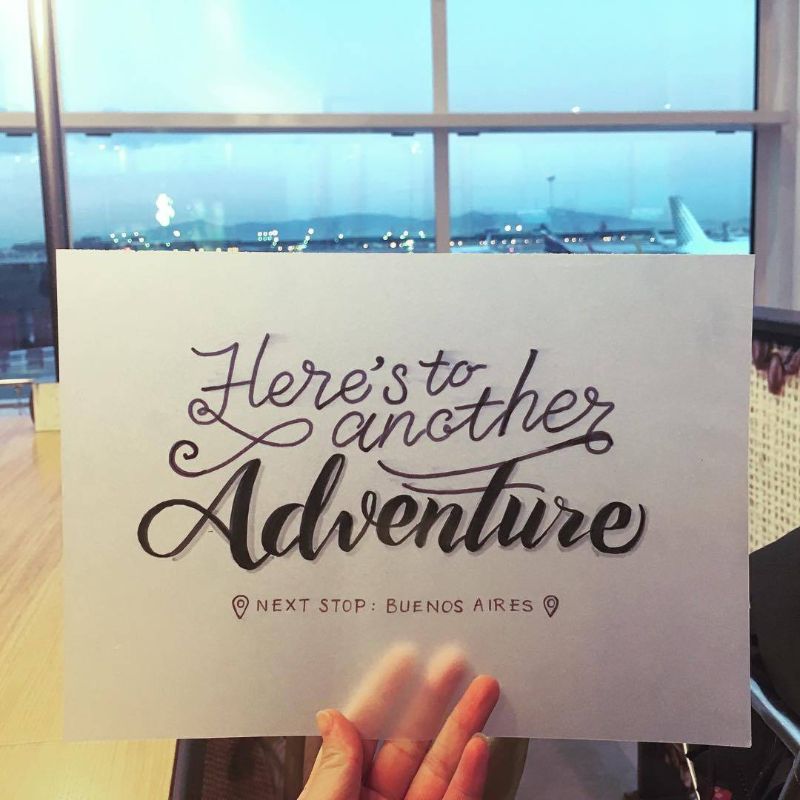 Here's to
another
Adventure
NEXT STOP: BUENOS AIRES